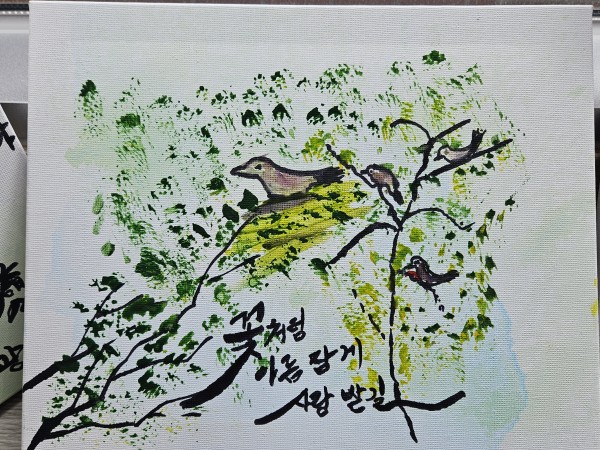 꽃처럼
아름답게
사랑 받길